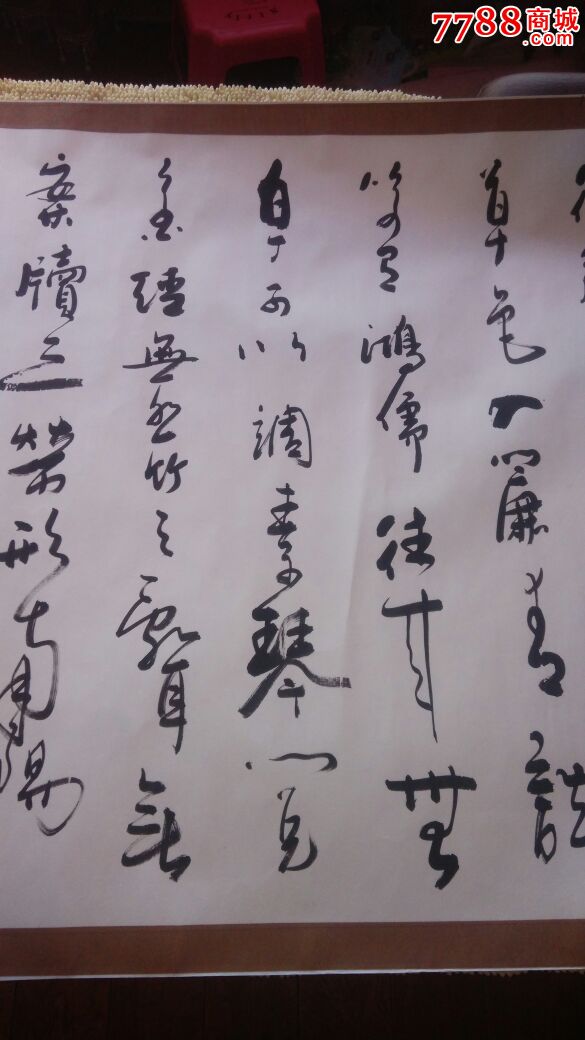 7788商城
.com
草色入簾青談
笑有鴻儒往來無
白丁可以調素琴閱
金經無絲竹之亂耳無
案牘之勞形南陽